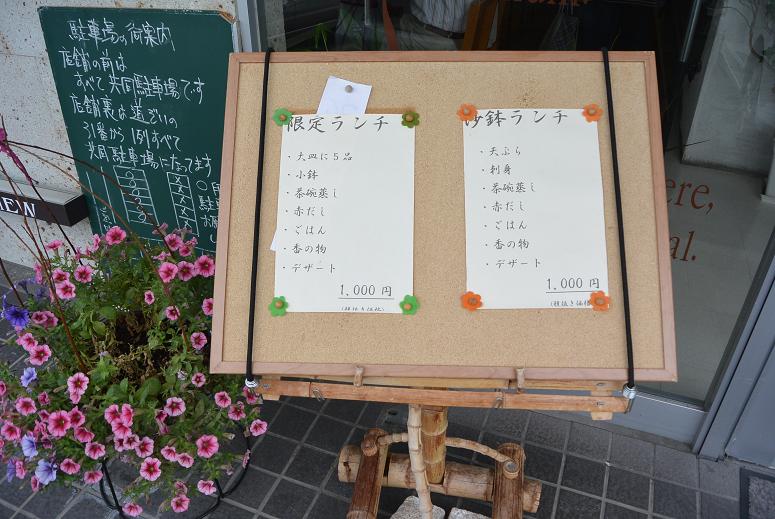 駐車場の御案内
店舗の前は
すべて共同駐車場です
店舗裏は道ぞいの
31番から1列すべて
共同駐車場になってます
VIEW
限定ランチ
・大皿に5品
・小鉢
・茶碗蒸し
・赤だし
・ごはん
・香の物
・デザート
1,000円
(税抜き価格)
沙鉢ランチ
・天ぷら
・刺身
・茶碗蒸し
・赤だし
・ごはん
・香の物
・デザート
1,000円
(税抜き価格)